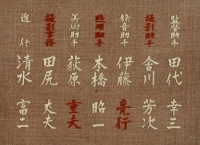 監督助手 田代幸三
撮影助手 舎川芳次
録音助手 伊藤亮行
照明助手 本橋昭一
美術助手 荻原重夫
撮影事務 田尻丈夫
進行 清水富一